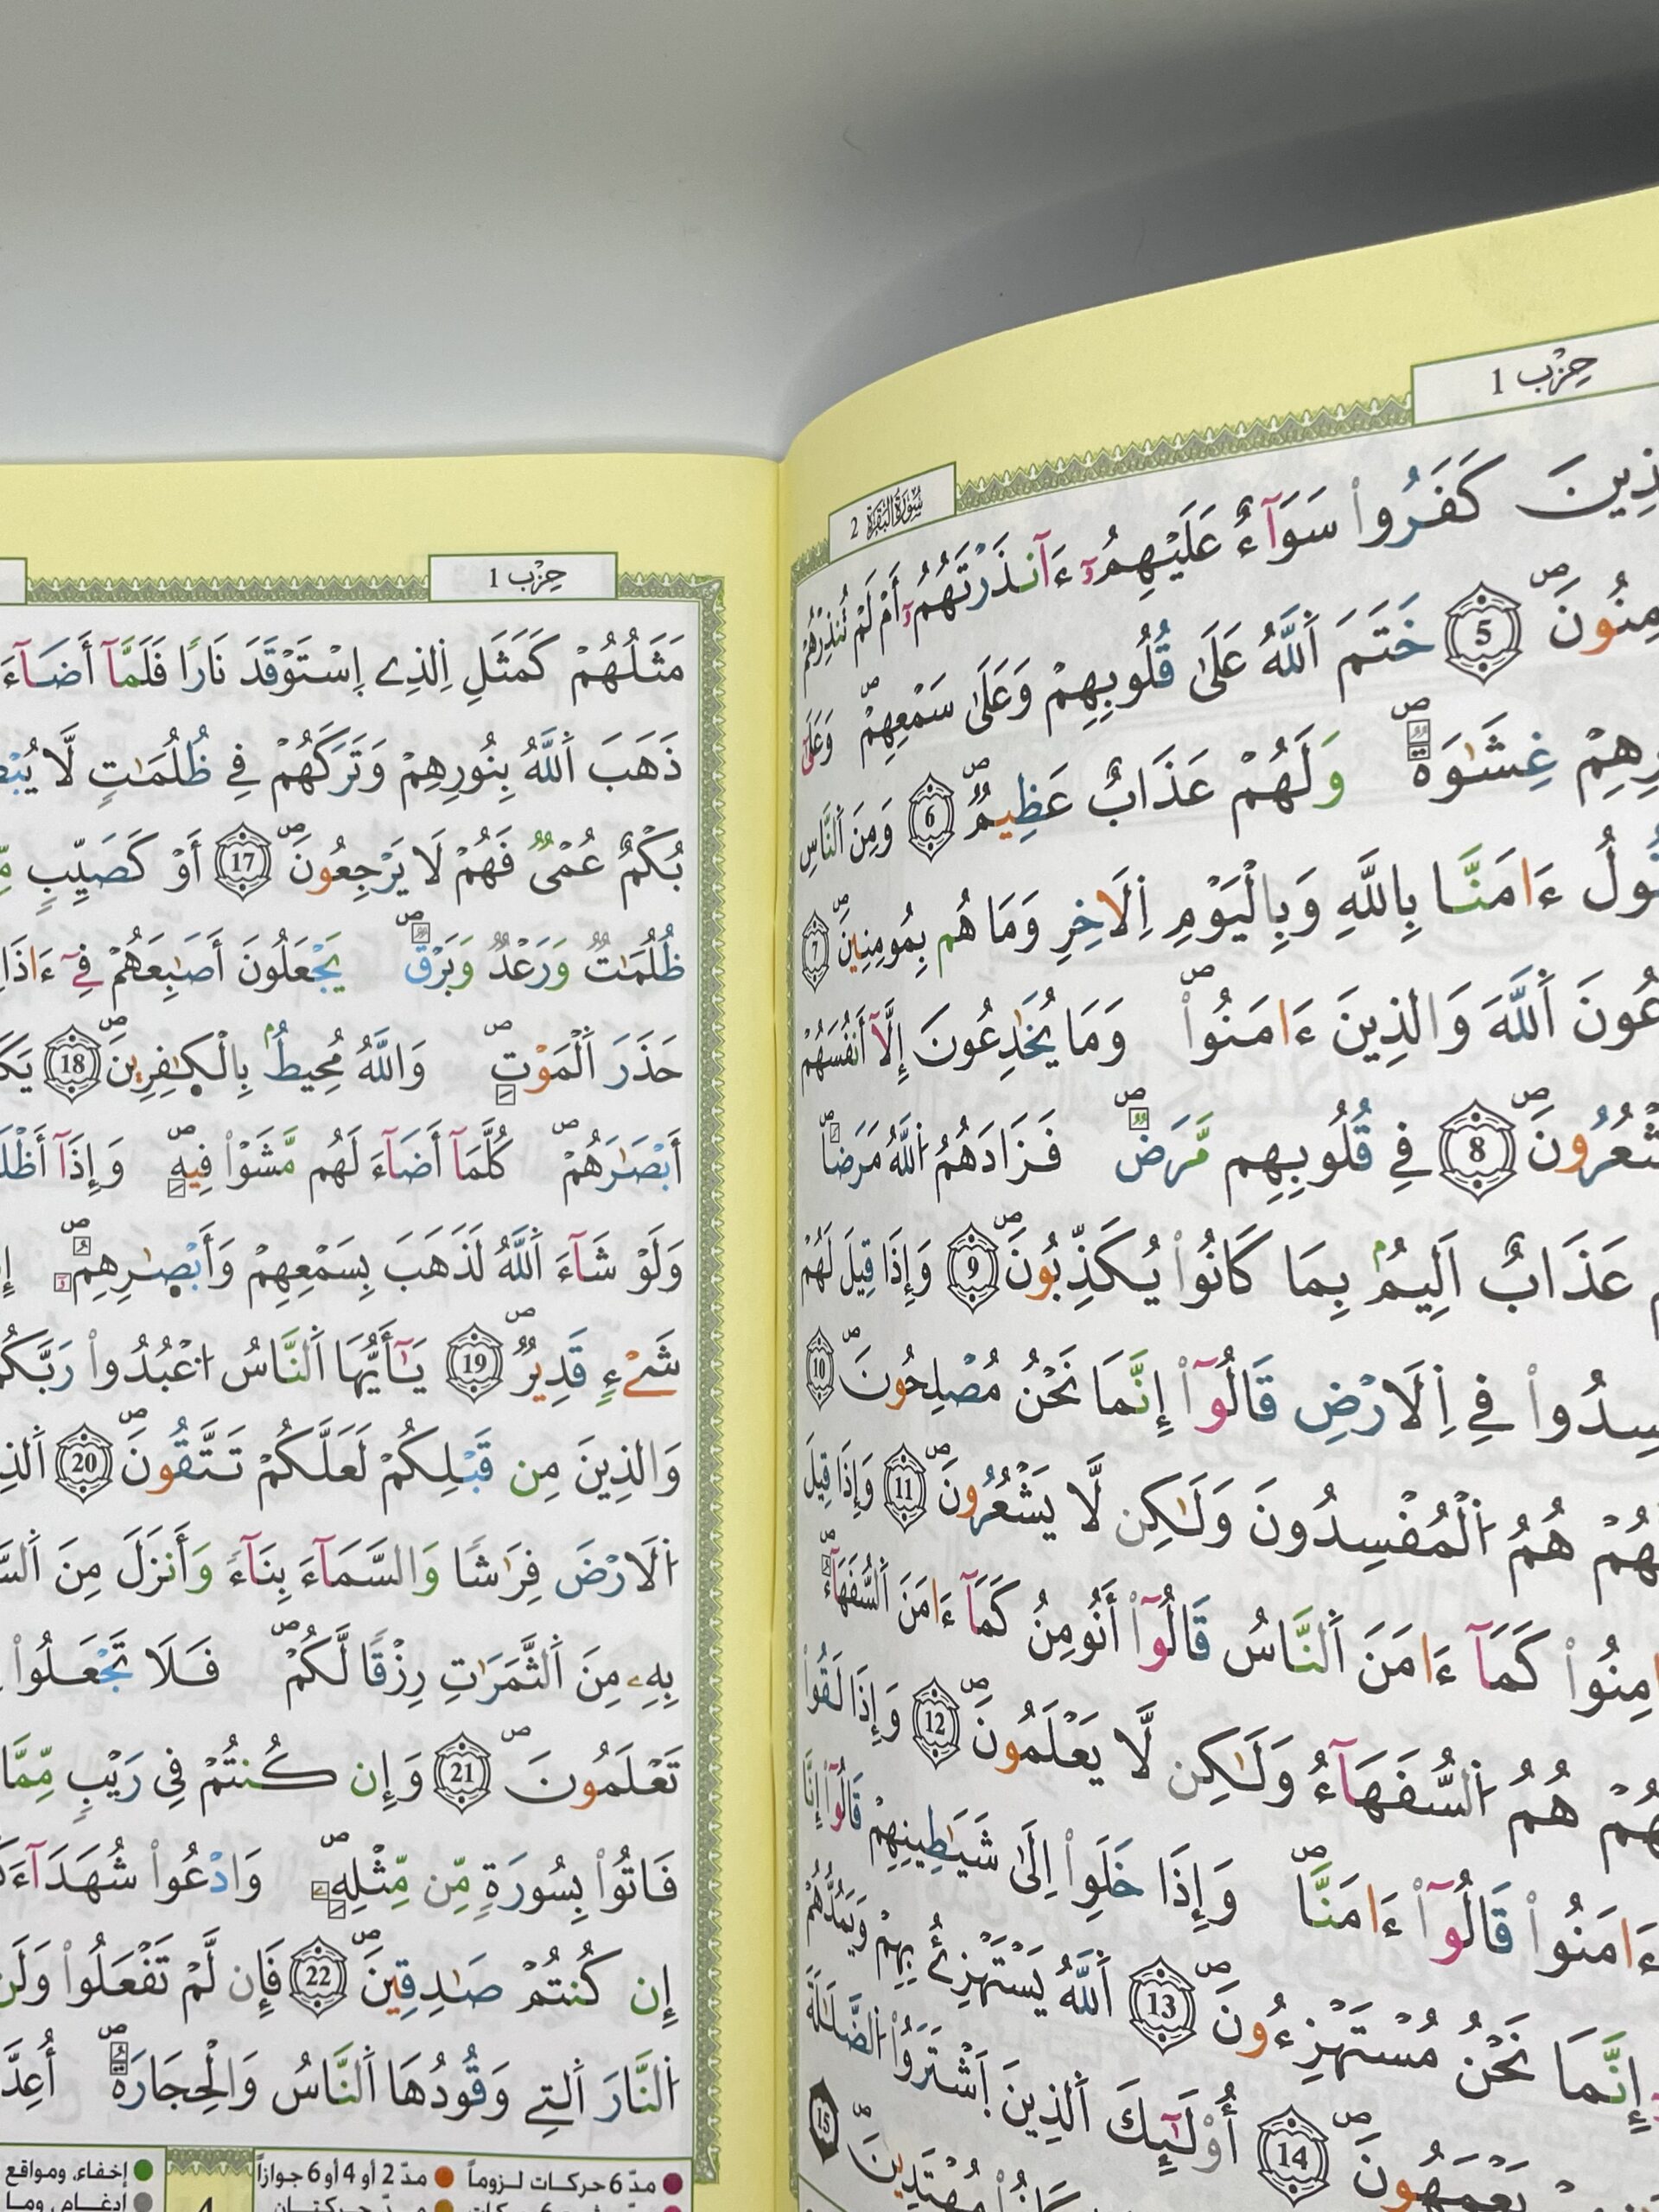 حِزْب 1
سُورَةُ الْبَقَرَةِ 2
كَفَرُواْ سَوَآءٌ عَلَيْهِمُۥٓ ءَآنذَرْتَهُمُۥٓ أَمْ لَمْ تُنذِرْهُمْ
5 خَتَمَ اَ۬للَّهُ عَلَىٰ قُلُوبِهِمْ وَعَلَىٰ سَمْعِهِمْ صۖ وَعَلَىٰٓ
غِشَٰوَةٞ صۖ وَلَهُمْ عَذَابٌ عَظِيمٞ صۖ 6 وَمِنَ اَ۬لنَّاسِ
ءَامَنَّا بِاللَّهِ وَبِالْيَوْمِ اِ۬لَاخِرِ وَمَا هُم بِمُومِنِينَ صۖ 7
اَ۬للَّهَ وَالذِينَ ءَامَنُواْ صۖ وَمَا يُخَٰدِعُونَ إِلَّآ أَنفُسَهُمْ
8 فِي قُلُوبِهِم مَّرَضٞ صۖ فَزَادَهُمُ اُ۬للَّهُ مَرَضاٗ صۖ
عَذَابٌ اَلِيمُۢ بِمَا كَانُواْ يُكَذِّبُونَ صۖ 9 وَإِذَا قِيلَ لَهُمْ
فِي اِ۬لَارْضِ قَالُوٓاْ إِنَّمَا نَحْنُ مُصْلِحُونَ صۖ 10
هُمُ اُ۬لْمُفْسِدُونَ وَلَٰكِن لَّا يَشْعُرُونَ صۖ 11 وَإِذَا قِيلَ
كَمَآ ءَامَنَ اَ۬لنَّاسُ قَالُوٓاْ أَنُومِنُ كَمَآ ءَامَنَ اَ۬لسُّفَهَآءُ صۖ
هُمُ اُ۬لسُّفَهَآءُ وَلَٰكِن لَّا يَعْلَمُونَ صۖ 12 وَإِذَا لَقُواْ
ءَامَنُواْ قَالُوٓاْ ءَامَنَّا صۖ وَإِذَا خَلَوِاْ اِلَىٰ شَيَٰطِينِهِمْ قَالُوٓاْ إِنَّا
إِنَّمَا نَحْنُ مُسْتَهْزِءُونَ صۖ 13 اَ۬للَّهُ يَسْتَهْزِئُ بِهِمْ وَيَمُدُّهُمْ
يَعْمَهُونَ صۖ 14 أُوْلَٰٓئِكَ اَ۬لذِينَ اَ۪شْتَرَوُاْ اُ۬لضَّلَٰلَةَ
مُهْتَدِينَ صۖ 15
حِزْب 1
مَثَلُهُمْ كَمَثَلِ اِ۬لذِے اِ۪سْتَوْقَدَ نَاراٗ فَلَمَّآ أَضَآءَ
ذَهَبَ اَ۬للَّهُ بِنُورِهِمْ وَتَرَكَهُمْ فِے ظُلُمَٰتٖ لَّا
بُكْمٌ عُمْيٞ فَهُمْ لَا يَرْجِعُونَ صۖ 17 أَوْ كَصَيِّبٖ
ظُلُمَٰتٞ وَرَعْدٞ وَبَرْقٞ صۖ يَجْعَلُونَ أَصَٰبِعَهُمْ فِےٓ ءَاذَا
حَذَرَ اَ۬لْمَوْتِ صۖ وَاللَّهُ مُحِيطُۢ بِالْكٰ۪فِرِينَ صۖ 18
أَبْصَٰرَهُمْ صۖ كُلَّمَآ أَضَآءَ لَهُم مَّشَوْاْ فِيهِ صۖ وَإِذَآ
وَلَوْ شَآءَ اَ۬للَّهُ لَذَهَبَ بِسَمْعِهِمْ وَأَبْصٰ۪رِهِمُۥٓ صۖ
شَےْءٖ قَدِيرٞ صۖ 19 يَٰٓأَيُّهَا اَ۬لنَّاسُ اُ۟عْبُدُواْ رَبَّكُمُ
وَالذِينَ مِن قَبْلِكُمْ لَعَلَّكُمْ تَتَّقُونَ صۖ 20
اُ۬لَارْضَ فِرَٰشاٗ وَالسَّمَآءَ بِنَآءٗ وَأَنزَلَ مِنَ
بِهِۦ مِنَ اَ۬لثَّمَرَٰتِ رِزْقاٗ لَّكُمْ صۖ فَلَا تَجْعَلُواْ
تَعْلَمُونَ صۖ 21 وَإِن كُنتُمْ فِے رَيْبٖ مِّمَّا
فَاتُواْ بِسُورَةٖ مِّن مِّثْلِهِۦ صۖ وَادْعُواْ
إِن كُنتُمْ صَٰدِقِينَ صۖ 22 فَإِن لَّمْ تَفْعَلُواْ وَلَن
اُ۬لنَّارَ اَ۬لتِے وَقُودُهَا اَ۬لنَّاسُ وَالْحِجَارَةُ صۖ
مدّ 6 حركات لـزوماً مدّ 2 أو 4 أو 6 جوازاً إخفاء، ومواقع